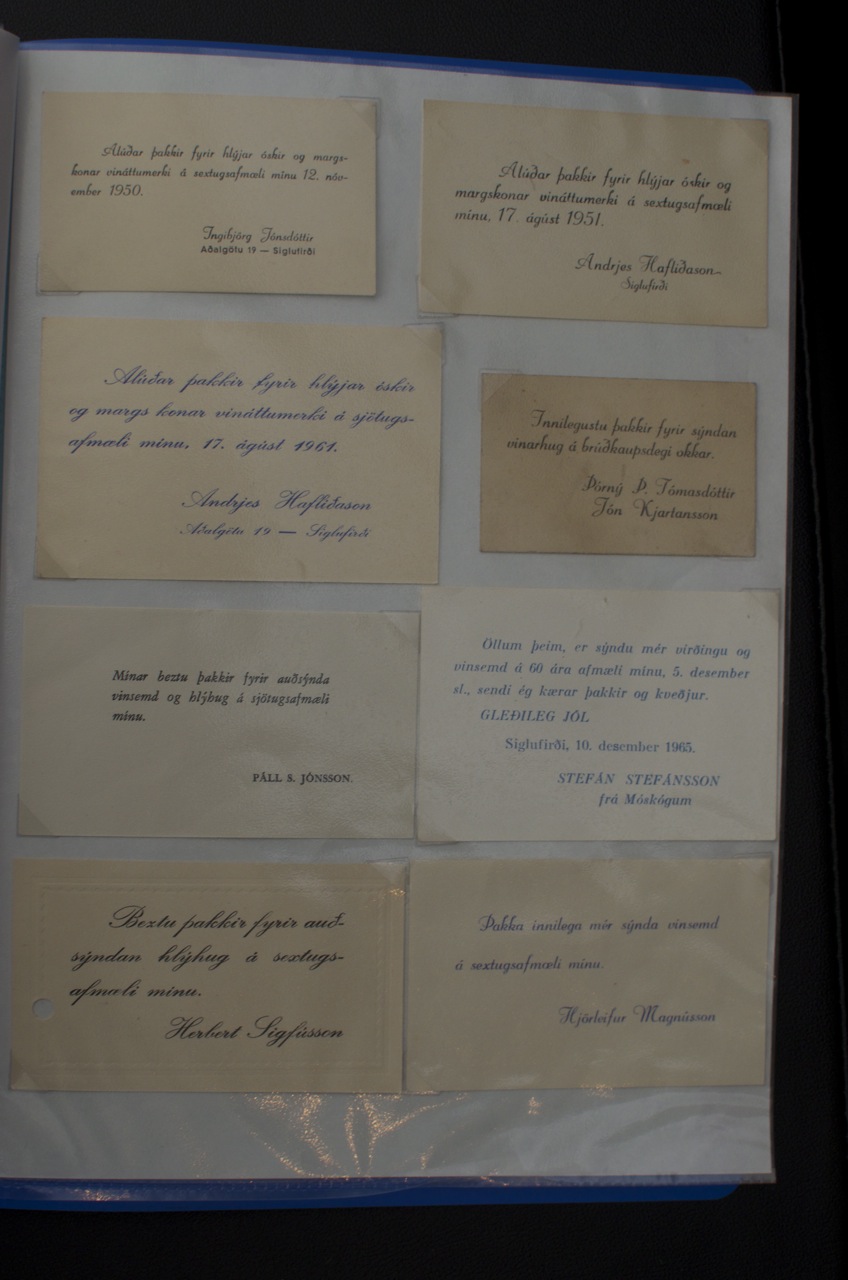 Alúðar þakkir fyrir hlýjar óskir og margs-
konar vináttumerki á sextugsafmæli mínu 12. nóv-
ember 1950.
Ingibjörg Jónsdóttir
Aðalgötu 19 — Siglufirði
Alúðar þakkir fyrir hlýjar óskir og
margskonar vináttumerki á sextugsafmæli
mínu, 17. ágúst 1951.
Andrjes Hafliðason
Siglufirði
Alúðar þakkir fyrir hlýjar óskir
og margs konar vináttumerki á sjötugs-
afmæli mínu, 17. ágúst 1961.
Andrjes Hafliðason
Aðalgötu 19 — Siglufirði
Innilegustu þakkir fyrir sýndan
vinarhug á brúðkaupsdegi okkar.
Þórný Þ. Tómasdóttir
Jón Kjartansson
Mínar beztu þakkir fyrir auðsýnda
vinsemd og hlýhug á sjötugsafmæli
mínu.
PÁLL S. JÓNSSON.
Öllum þeim, er sýndu mér virðingu og
vinsemd á 60 ára afmæli mínu, 5. desember
sl., sendi ég kærar þakkir og kveðjur.
GLEÐILEG JÓL
Siglufirði, 10. desember 1965.
STEFÁN STEFÁNSSON
frá Móskógum
Beztu þakkir fyrir auð-
sýndan hlýhug á sextugs-
afmæli mínu.
Herbert Sigfússon
Þakka innilega mér sýnda vinsemd
á sextugsafmæli mínu.
Hjörleifur Magnússon